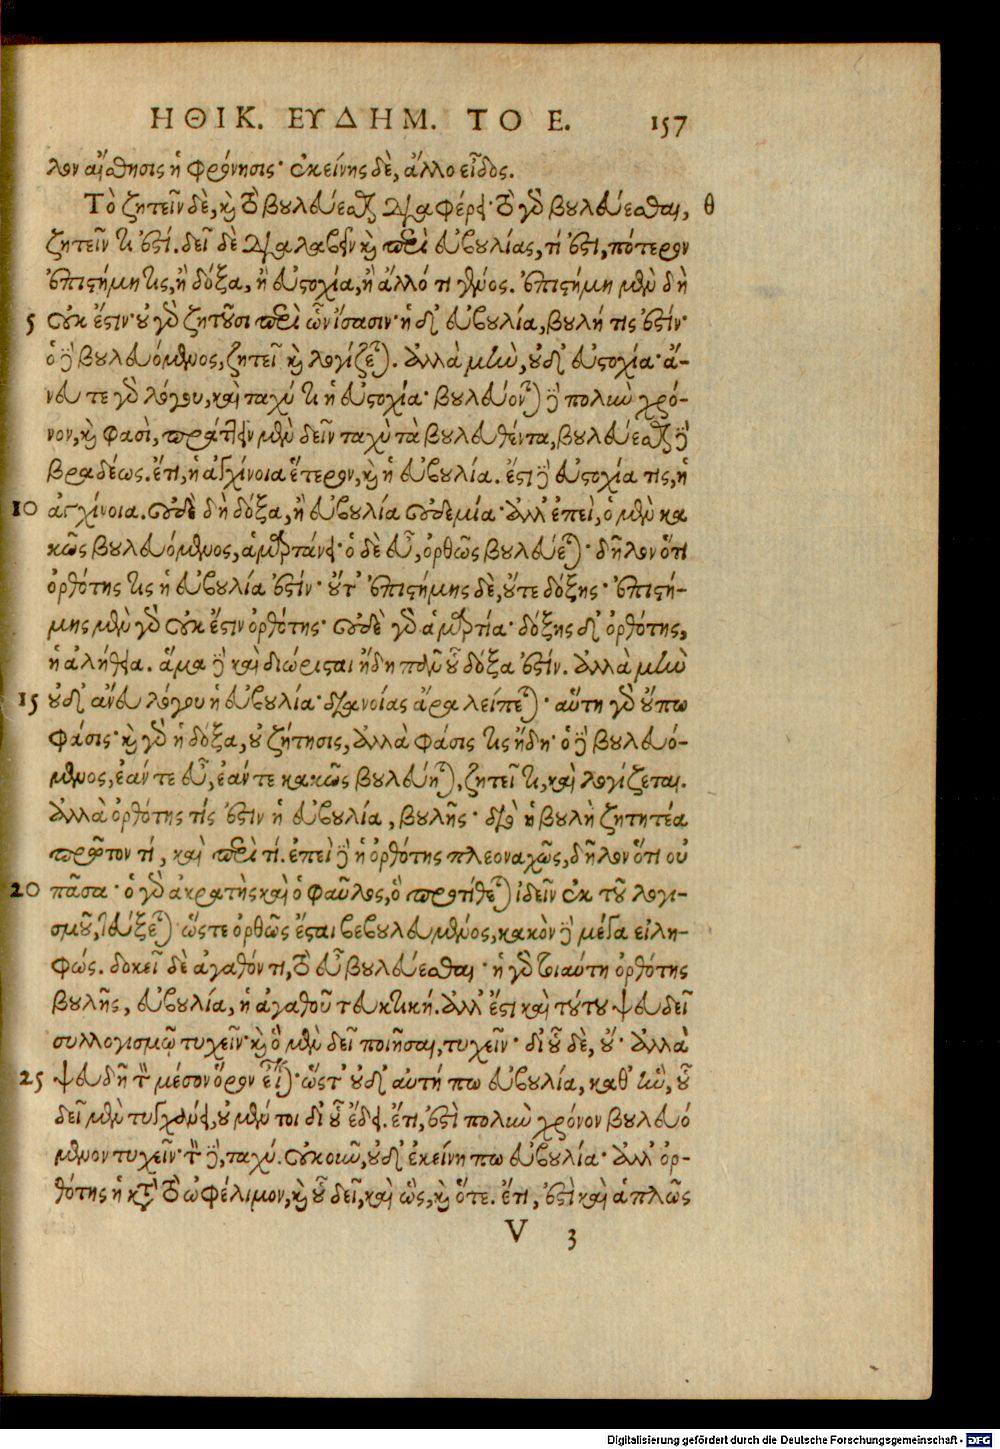 ΗΘΙΚ. ΕΥΔΗΜ. ΤΟ Ε. 157
λον αἴσθησις ἢ φρόνησις· ἐκείνης δὲ, ἄλλο εἶδος.
Τὸ ζητεῖν δὲ, καὶ τὸ βουλεύεσθαι διαφέρει· τὸ γὰρ βουλεύεσθαι, θ
ζητεῖν τι ἐστί. δεῖ δὲ διαλαβεῖν καὶ περὶ εὐβουλίας, τί ἐστι, πότερον
ἐπιστήμη τις, ἢ δόξα, ἢ εὐστοχία, ἢ ἄλλό τι γένος. ἐπιστήμη μὲν δὴ
5 οὐκ ἔστιν· οὐ γὰρ ζητοῦσι περὶ ὧν ἴσασιν· ἡ δ' εὐβουλία, βουλή τις ἐστίν·
ὁ δὲ βουλευόμενος, ζητεῖ καὶ λογίζεται. ἀλλὰ μὴν, οὐδ' εὐστοχία· ἄ-
νευ τε γὰρ λόγου, καὶ ταχύ τι ἡ εὐστοχία· βουλεύονται δὲ πολὺν χρό-
νον, καὶ φασὶ, πράττειν μὲν δεῖν ταχὺ τὰ βουλευθέντα, βουλεύεσθαι δὲ
βραδέως. ἔτι, ἡ ἀγχίνοια ἕτερον, καὶ ἡ εὐβουλία. ἔστι δὲ εὐστοχία τις, ἡ
10 ἀγχίνοια. οὐδὲ δὴ δόξα, ἡ εὐβουλία οὐδεμία· ἀλλ' ἐπεὶ, ὁ μὲν κα
κῶς βουλευόμενος, ἁμαρτάνει· ὁ δὲ εὖ, ὀρθῶς βουλεύεται· δῆλον ὅτι
ὀρθότης τις ἡ εὐβουλία ἐστίν· οὔτ' ἐπιστήμης δὲ, οὔτε δόξης· ἐπιστή-
μης μὲν γὰρ οὐκ ἔστιν ὀρθότης· οὐδὲ γὰρ ἁμαρτία· δόξης δ' ὀρθότης,
ἡ ἀλήθεια. ἅμα δὲ καὶ διώρισται ἤδη πᾶν οὗ δόξα ἐστίν. ἀλλὰ μὴν
15 οὐδ' ἄνευ λόγου ἡ εὐβουλία· διανοίας ἄρα λείπεται· αὕτη γὰρ οὔπω
φάσις· καὶ γὰρ ἡ δόξα, οὐ ζήτησις, ἀλλὰ φάσις τις ἤδη· ὁ δὲ βουλευό-
μενος, ἐάν τε εὖ, ἐάν τε κακῶς βουλεύηται, ζητεῖ τι, καὶ λογίζεται.
ἀλλὰ ὀρθότης τίς ἐστιν ἡ εὐβουλία, βουλῆς· διὸ ἡ βουλὴ ζητητέα
πρῶτον τί, καὶ περὶ τί. ἐπεὶ δὲ ἡ ὀρθότης πλεοναχῶς, δῆλον ὅτι οὐ
20 πᾶσα· ὁ γὰρ ἀκρατὴς καὶ ὁ φαῦλος, ὃ προτίθεται ἰδεῖν ἐκ τοῦ λογι-
σμοῦ, τεύξεται· ὥστε ὀρθῶς ἔσται βεβουλευμένος, κακὸν δὲ μέγα εἰλη-
φώς. δοκεῖ δὲ ἀγαθόν τι, τὸ εὖ βουλεύεσθαι· ἡ γὰρ τοιαύτη ὀρθότης
βουλῆς, εὐβουλία, ἡ ἀγαθοῦ τευκτική. ἀλλ' ἔστι καὶ τούτου ψευδεῖ
συλλογισμῷ τυχεῖν· καὶ ὃ μὲν δεῖ ποιῆσαι, τυχεῖν· δι' οὗ δὲ, οὔ· ἀλλὰ
25 ψευδῆ τὸν μέσον ὅρον εἶναι· ὥστ' οὐδ' αὐτή πω εὐβουλία, καθ' ἣν, οὗ
δεῖ μὲν τυγχάνει, οὐ μέν τοι δι' οὗ ἔδει. ἔτι, ἔστι πολὺν χρόνον βουλευό
μενον τυχεῖν· τὸν δὲ, ταχύ. οὐκοῦν, οὐδ' ἐκείνη πω εὐβουλία· ἀλλ' ὀρ-
θότης ἡ κατὰ τὸ ὠφέλιμον, καὶ οὗ δεῖ, καὶ ὡς, καὶ ὅτε. ἔτι, ἔστι καὶ ἁπλῶς
V 3
Digitalisierung gefördert durch die Deutsche Forschungsgemeinschaft - DFG